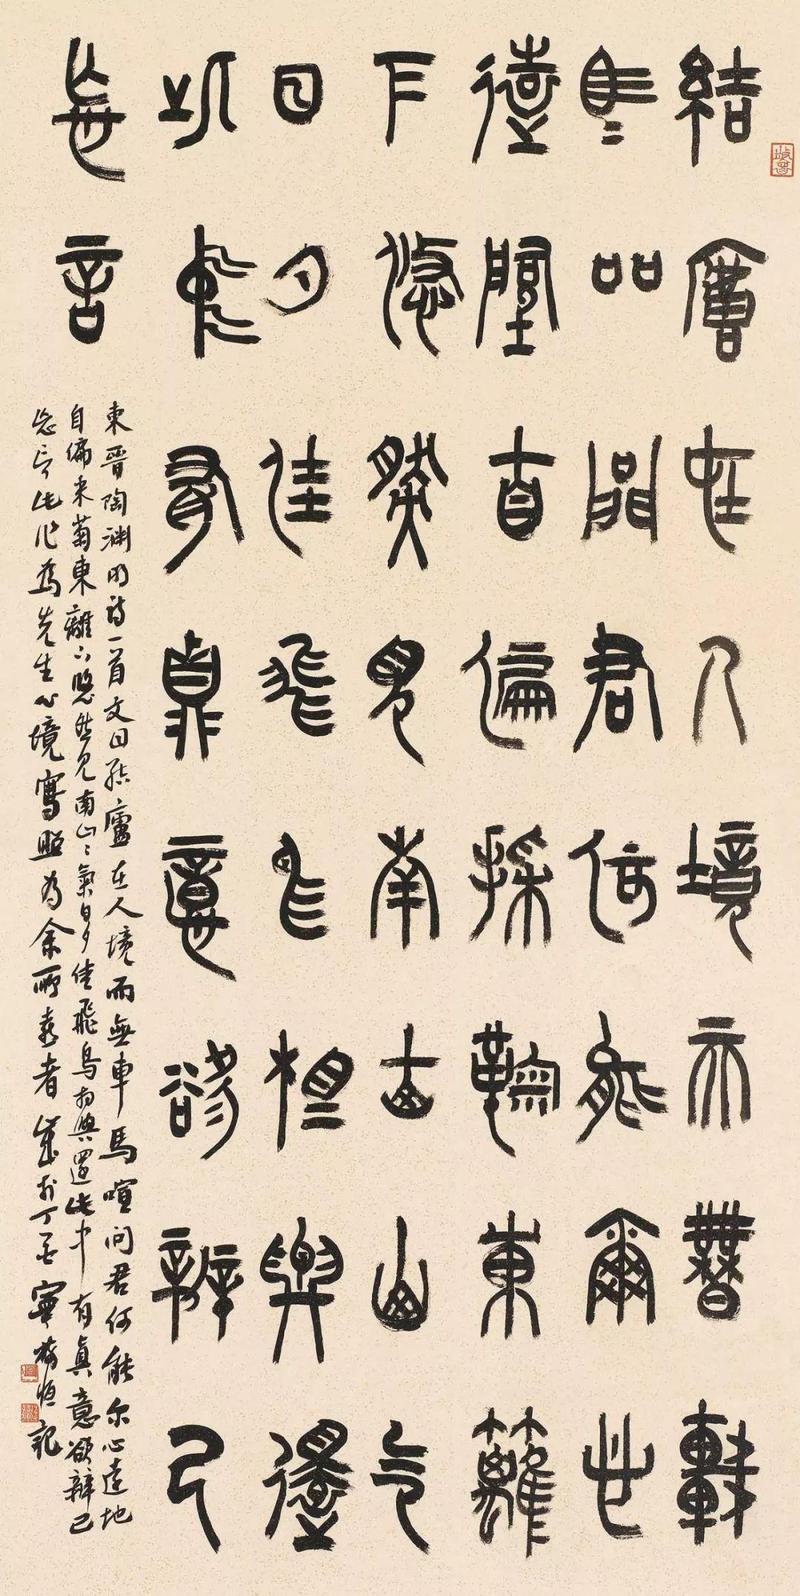 結廬在人境而無車
馬吅問君何能爾心
遠地自偏採菊東籬
下悠然見南山山气
日夕佳飛鳥相與還
此中有真意欲辨已
忘言
東晋陶淵明詩一首文曰結廬在人境而無車馬喧問君何能尔心遠地
自偏采菊東籬下悠然見南山〻氣日夕佳飛鳥相與還此中有真意欲辯已
忘言此作為先生心境寫照為余所喜者歲於丁亥寧恆記